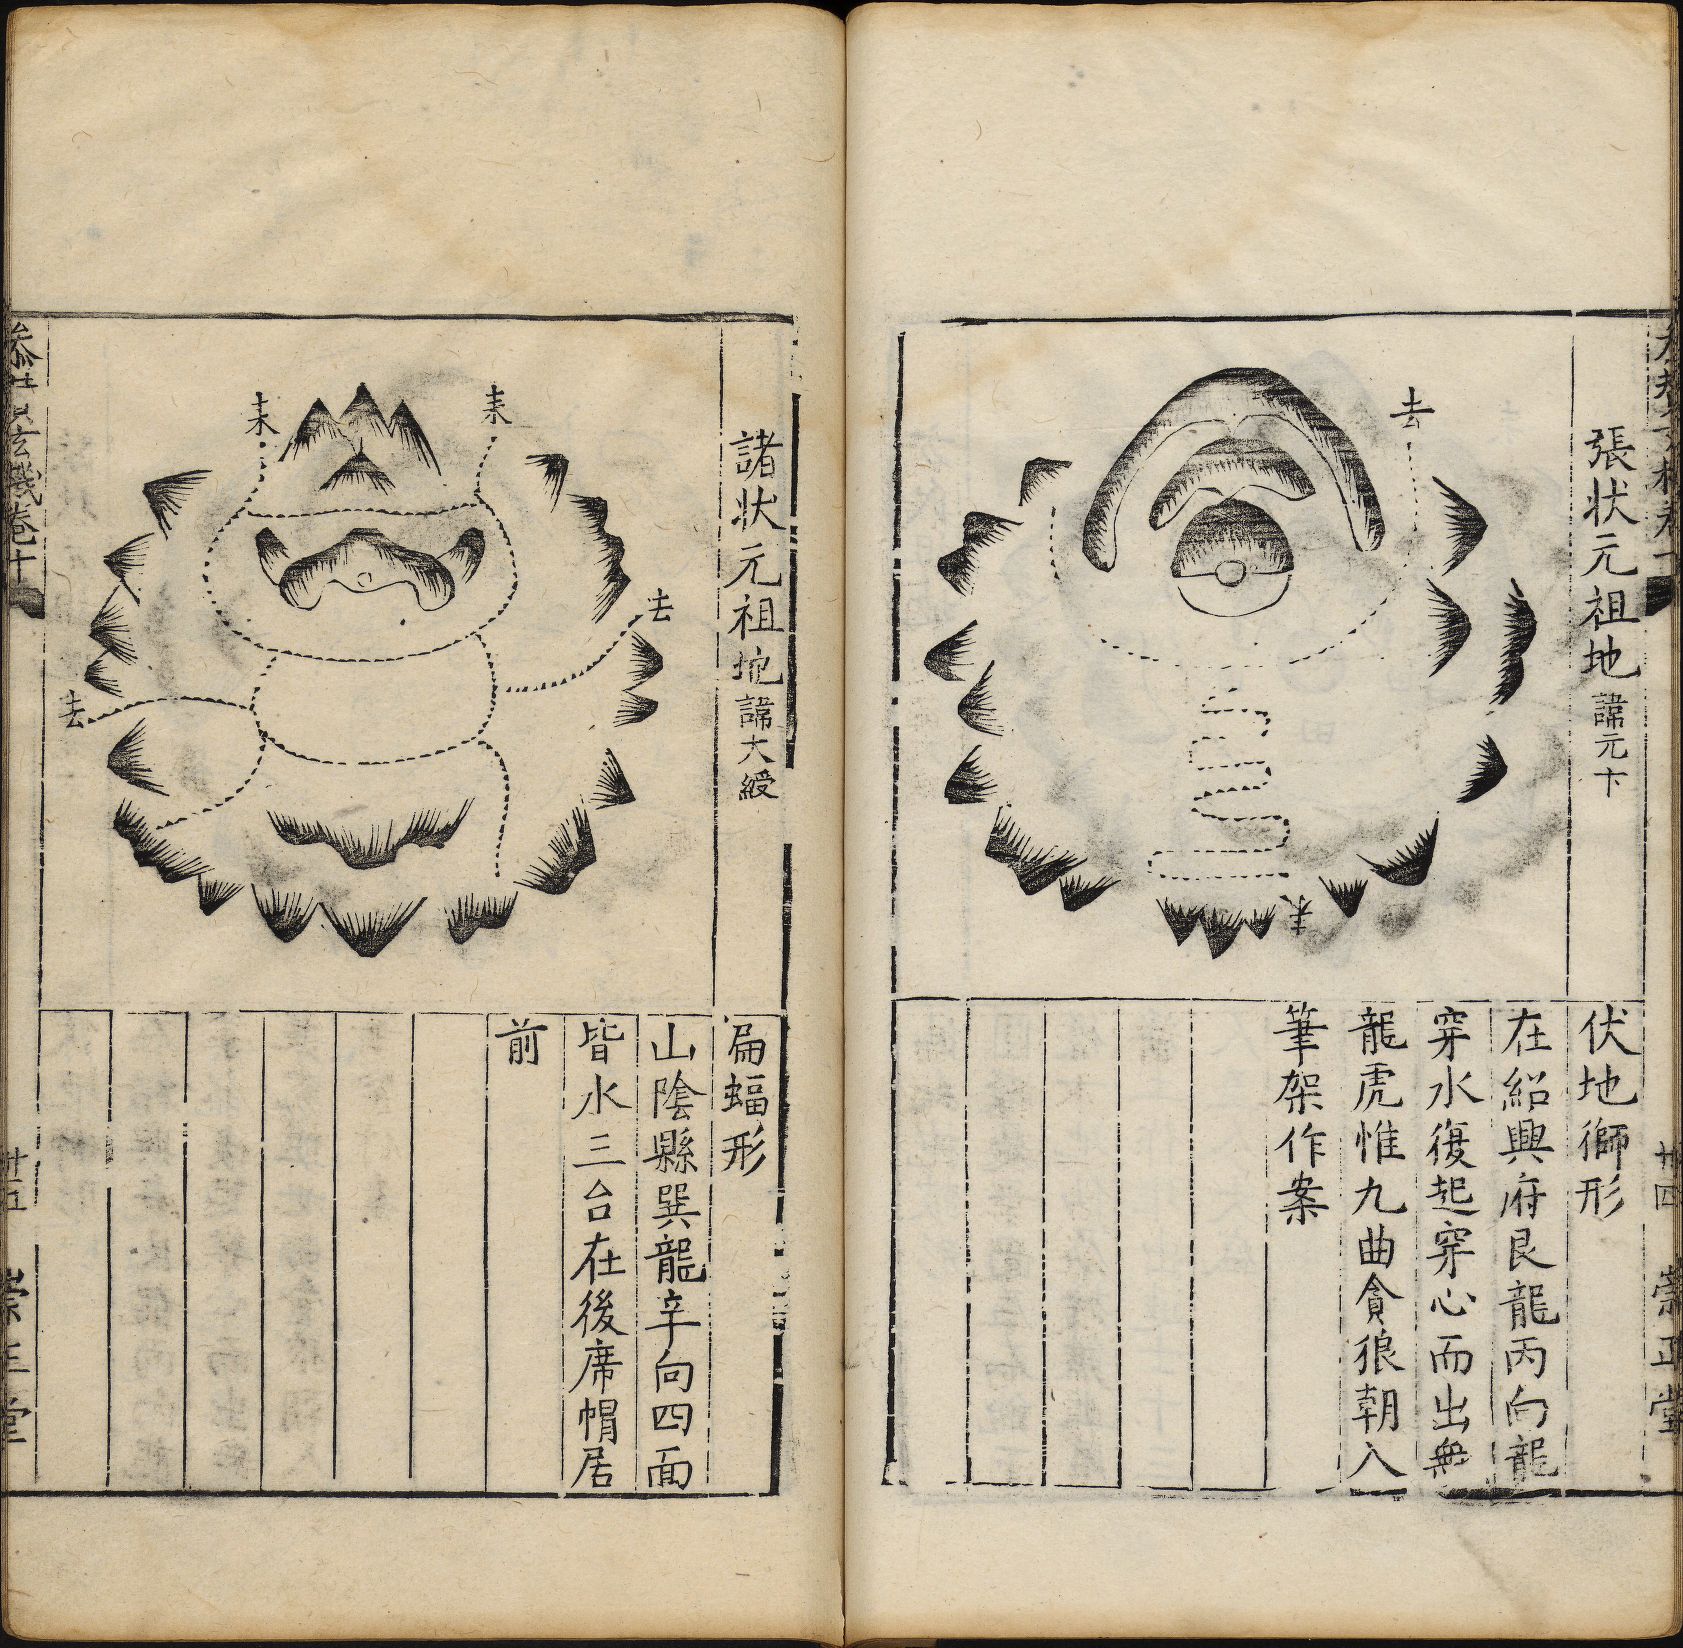 張狀元祖地 諱元卞
去
来
伏地獅形
在紹興府艮龍丙向龍
穿水復起穿心而出無
龍虎惟九曲貪狼朝入
筆架作案
廿四
崇正堂
諸狀元祖地 諱大綬
来
来
去
去
扁蝠形
山陰縣巽龍辛向四面
皆水三台在後席帽居
前
玄機卷十
廿五
崇正堂